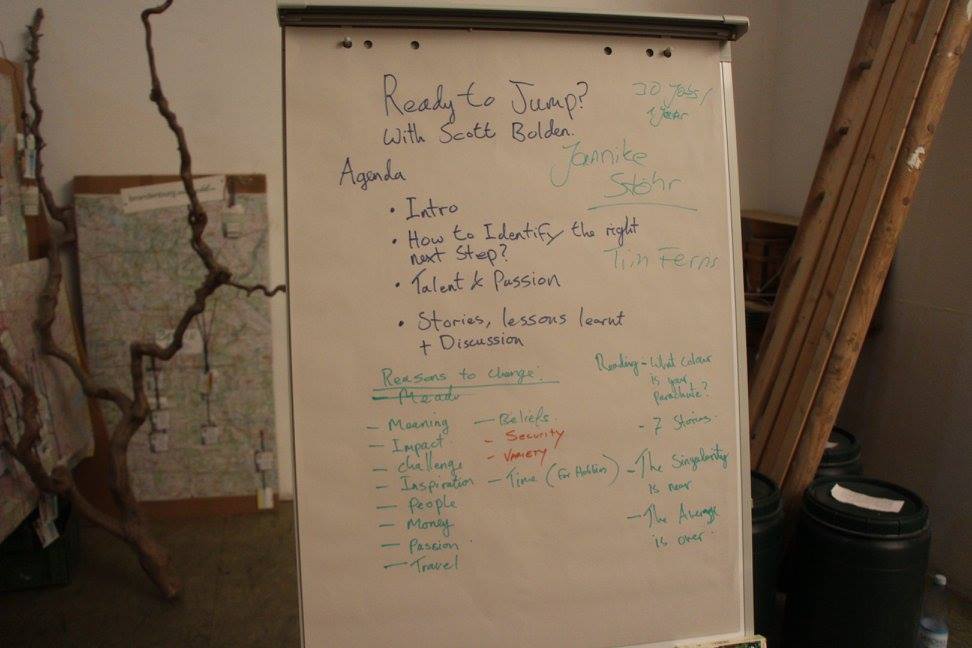 Ready to Jump?
With Scott Bolden.
30 Jobs/
1 Year
Jannike
Stöhr
Tim Ferris
Agenda
• Intro
• How to Identify the right
next Step?
• Talent & Passion
• Stories, lessons learnt
+ Discussion
Reasons to change:
— Meaning
— Impact
— challenge
— Inspiration
— People
— Money
— Passion
— Travel
— Beliefs
- Security
- VARIETY
— Time (For Hobbies)
Reading - What colour
is your
Parachute?
- 7 Stories
- The Singularity
is near
- The Average
is over